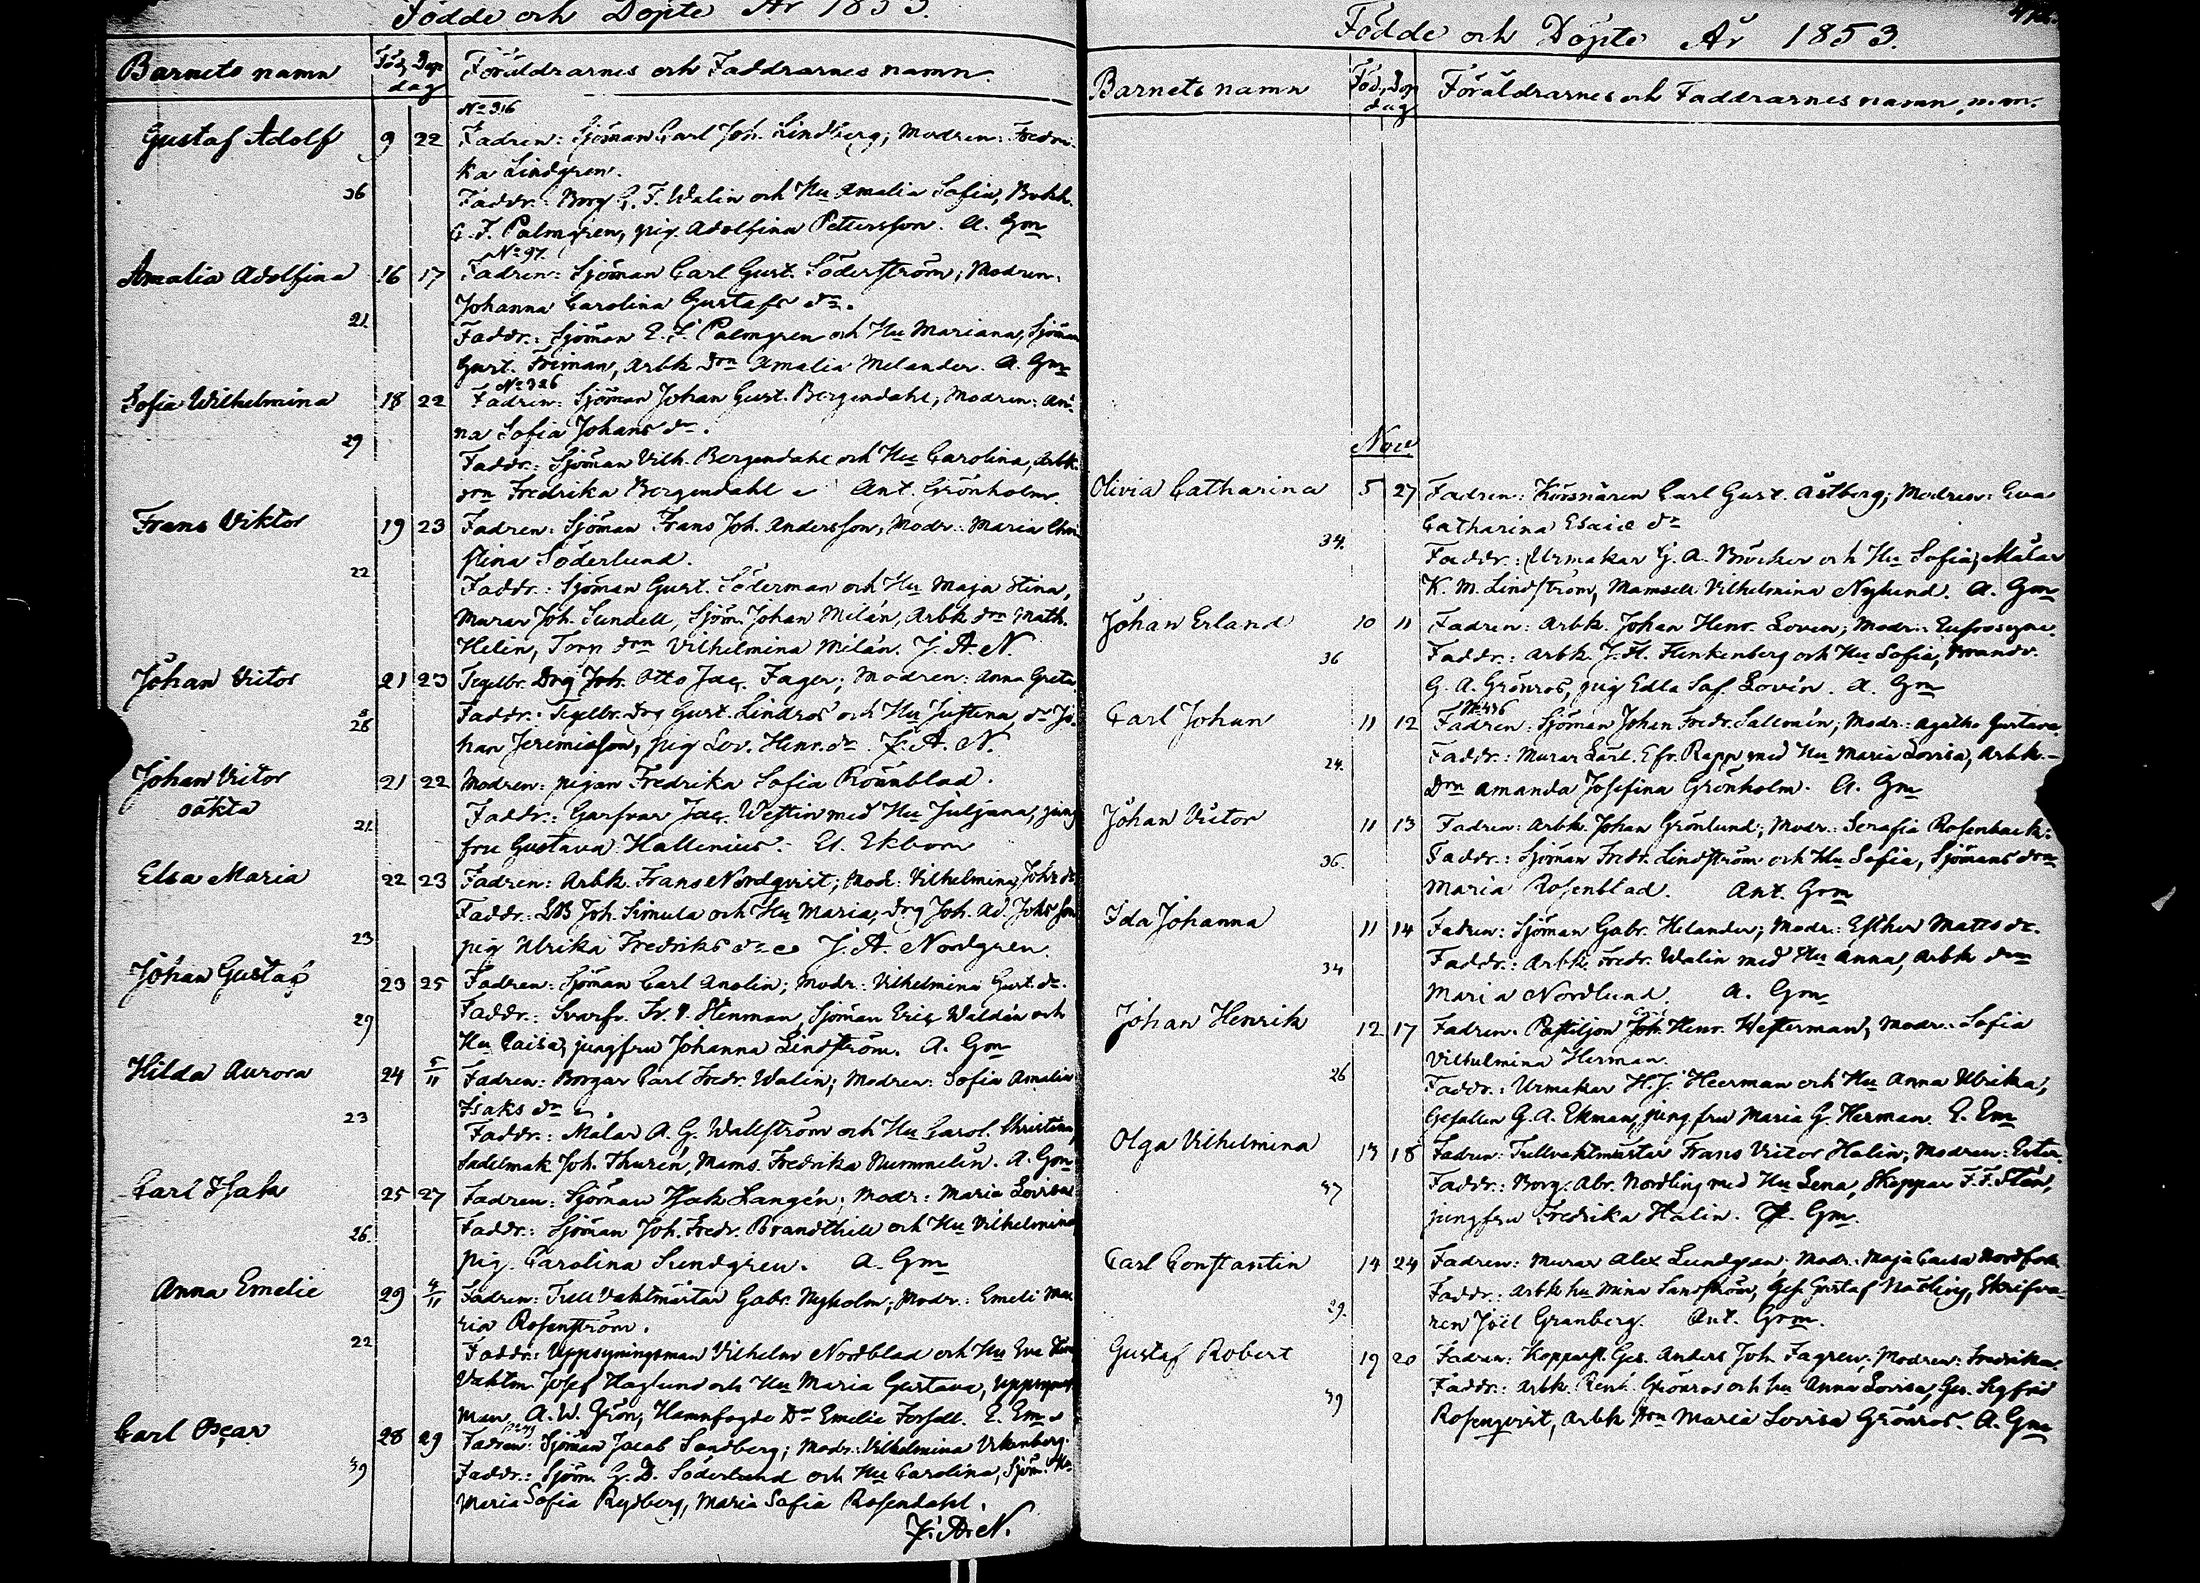 Födde och Döpte År 1853.
Barnets namn Föd. Döp. dag Föräldrarnes och Faddrarnes namn.
No 316
Gustaf Adolf 9 22 Fadren: Sjöman Carl Joh. Lindberg; Modren: Fredri-
ka Lindgren.
36 Faddr.: Borg. G. F. Walin och Hu Amalia Sofia, Bokh.
C. F. Palmgren, pig. Adolfina Pettersson. A. Gm
No 97.
Amalia Adolfina 16 17 Fadren: Sjöman Carl Gust. Söderström; Modren:
Johanna Carolina Gustafs dr.
21 Faddr.: Sjöman E. F. Palmgren och Hu Mariana, Sjöman
Gust. Friman, Arbk drn Amalia Melander. A. Gm
No 326
Sofia Wilhelmina 18 22 Fadren: Sjöman Johan Gust. Bergendahl, Modren: An-
na Sofia Johans dr.
29 Faddr.: Sjöman Vilh. Bergendahl och Hu Carolina, Arbk.
drn Fredrika Bergendahl Ant. Grönholm
Frans Viktor 19 23 Fadren: Sjöman Frans Joh. Andersson, Modr.: Maria Chri
stina Söderlund.
22 Faddr.: Sjöman Gust. Söderman och Hu Maja Stina,
Murar Joh. Sundell, Sjöm. Johan Milán, Arbk drn Math.
Helin, Torp drn Vilhelmina Milán. J. A. N.
Johan Victor 21 23 Tegelbr. Drg Joh. Otto Jac. Fager; Modren: Anna Greta.
28 Faddr.: Tegelbr. Drg Gust. Lindros och Hu Justina, dr Jo-
han Jeremiasson, pig Lov. Henr. dr. J. A. N.
Johan Victor 21 22 Modren: pigan Fredrika Sofia Rönnblad.
oäkta
21 Faddr.: Garfvar Jac. Westin med Hu Juliana, jung
fru Gustava Hallenius. El. Ekbom
Elsa Maria 22 23 Fadren: Arbk. Frans Nordqvist; Mod: Vilhelmina Johs dr
Faddr.: LB Joh. Simula och Hu Maria, Drg Joh. Ad. Johs son
23 pig Ulrika Fredriks dr J. A. Nordgren.
Johan Gustaf 23 25 Fadren: Sjöman Carl Anolin; Modr: Vilhelmina Gust. dr.
29 Faddr.: Svarfv. Fr. V. Stenman, Sjöman Eric Waldén och
Hu Caisa, jungfru Johanna Lindström. A. Gm
Hilda Aurora 24 5/11 Fadren: Borgar Carl Fredr. Walin; Modren: Sofia Amalia
Isaks dr.
23 Faddr.: Målar A. G. Wallström och Hu Carol. Christina,
Sadelmak. Joh. Thurén, Mams. Fredrika Nummelin. A. Gm
Carl Isak 25 27 Fadren: Sjöman Isak Langén; Modr: Maria Lovisa
26. Faddr: Sjöman Joh. Fredr. Brandthill och Hu Vilhelmina
pig. Carolina Sundgren. A. Gm
Anna Emelie 29 4/11 Fadren: Tull Vaktmästar Gabr. Nyholm; Modr: Emeli Ma
ria Rosenström.
22 Faddr.: Uppsyningsman Vilhelm Nordblad och Hu Eva
Vaktm. Josef Haglund och Hu Maria Gustava, Uppsynings
man A. W. Grön, Hamnfogde Dr Emelie Forsell. E. Em
Carl Oscar 28 29 Fadren: Sjöman Jacob Sandberg; Modr: Vilhelmina Vikenberg.
39 Faddr.: Sjöm. G. D. Söderlund och Hu Carolina, Sjöm. Hu
Maria Sofia Rydberg, Maria Sofia Rosendahl.
J. A. N.
Födde och Döpte År 1853.
Barnets namn Föd. Döp dag Föräldrarnes och Faddrarnes namn, m.m.
Nov
Olivia Catharina 5 27 Fadren: Körsnären Carl Gust. Åstberg; Modren: Eva
Catharina Esaie dr
34. Faddr.: Urmakar G. A. Bürcher och Hu Sofia, Målar
K. M. Lindström, Mamsell Vilhelmina Nylund. A. Gm
Johan Erland 10 11 Fadren: Arbk. Johan Henr. Loven; Modr: Eufrosyne.
36 Faddr.: Arbk. J. H. Flinkenberg och Hu Sofia, Brandv.
G. A. Grönros, pig Edla Sof. Lovén. A. Gm
Carl Johan 11 12 Fadren: Sjöman Johan Fredr. Sallmén; Modr: Agatha Gustava
24. Faddr.: Murar Carl. Efr. Rapp med Hu Maria Lovisa, Arbk.
Drn Amanda Josefina Grönholm. A. Gm
Johan Victor 11 13 Fadren: Arbk. Johan Grönlund; Modr.: Serafia Rosenback.
36. Faddr.: Sjöman Fredr. Lindström och Hu Sofia, Sjömans drn
Maria Rosenblad. Ant. Grm
Ida Johanna 11 14 Fadren: Sjöman Gabr. Helander; Modr.: Esther Matts dr.
34 Faddr.: Arbk. Fredr. Walin med Hu Anna, Arbk drn
Maria Nordlund. A. Gm
Johan Henrik 12 17 Fadren: Postiljon Joh. Henr. Westerman, Modr.: Sofia
Vilhelmina Herman.
26 Faddr.: Urmakar H. J. Heerman och Hu Anna Ulrika,
Gesällen G. A. Ekman, jungfru Maria G. Herman. E. Em
Olga Vilhelmina 13 18 Fadren: Tullvaktmästar Frans Victor Halin; Modren: Ester.
37 Faddr.: Borg. Abr. Nordling med Hu Lena, Skeppar F. F. Stån,
jungfru Fredrika Halin. A. Gm.
Carl Constantin 14 24 Fadren: Murar Alex Lundgren; Modr: Maja Caisa Nordfors
29. Faddr.: Arbk hu Mina Sandström, Ges. Gustaf Nobling, Skrifva-
ren Joël Granberg. Ant. Grm.
Gustaf Robert 19 20 Fadren: Kopparsl. Ges. Anders Joh. Fagren; Modren: Fredrika.
39 Faddr.: Arbk. Grönros och hu Anna Lovisa, Ges. Sigfrid
Rosenqvist, Arbk Drn Maria Lovisa Grönros. A. Gm